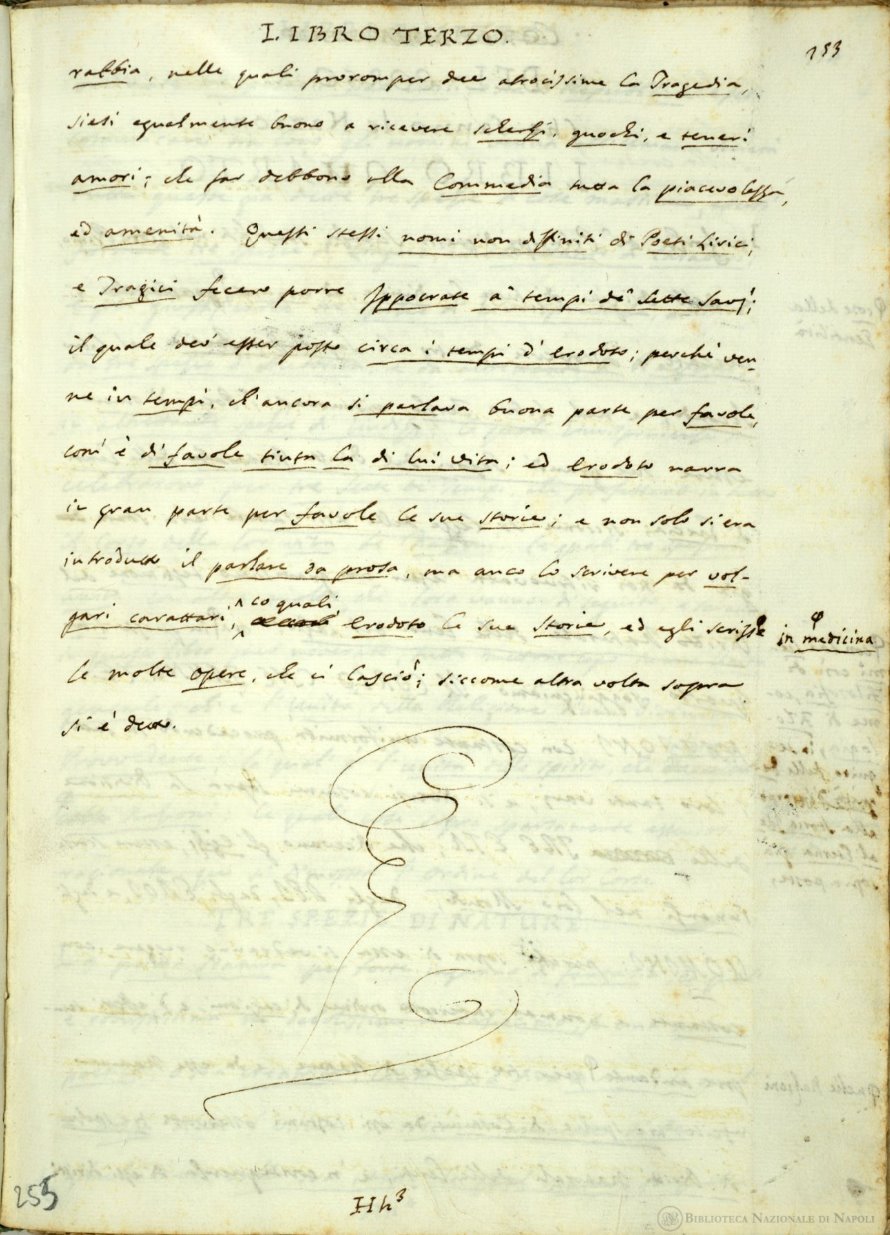 LIBRO TERZO.
153
rabbia, nelle quali proromper dee atrocissime la Tragedia,
siesi egualmente buono a ricevere scherzi, giuochi, e teneri
amori; che far debbono alla Commedia tutta la piacevolezza,
ed amenità. Questi stessi nomi non diffiniti di Poeti Lirici,
e Tragici fecero porre Ippocrate a' tempi de' sette Savj;
il quale dev' esser posto circa i tempi d' Erodoto; perchè ven-
ne in tempi, ch'ancora si parlava buona parte per favole,
com' è di favole tinta la di lui vita; ed Erodoto narra
in gran parte per favole le sue storie; e non solo si era
introdutto il parlare da prosa, ma anco lo scrivere per vol-
gari caratteri, co' quali Erodoto le sue Storie, ed egli scrisse in medicina
le molte opere, che ci lasciò; siccome altra volta sopra
si è detto.
253
Hh3
BIBLIOTECA NAZIONALE DI NAPOLI